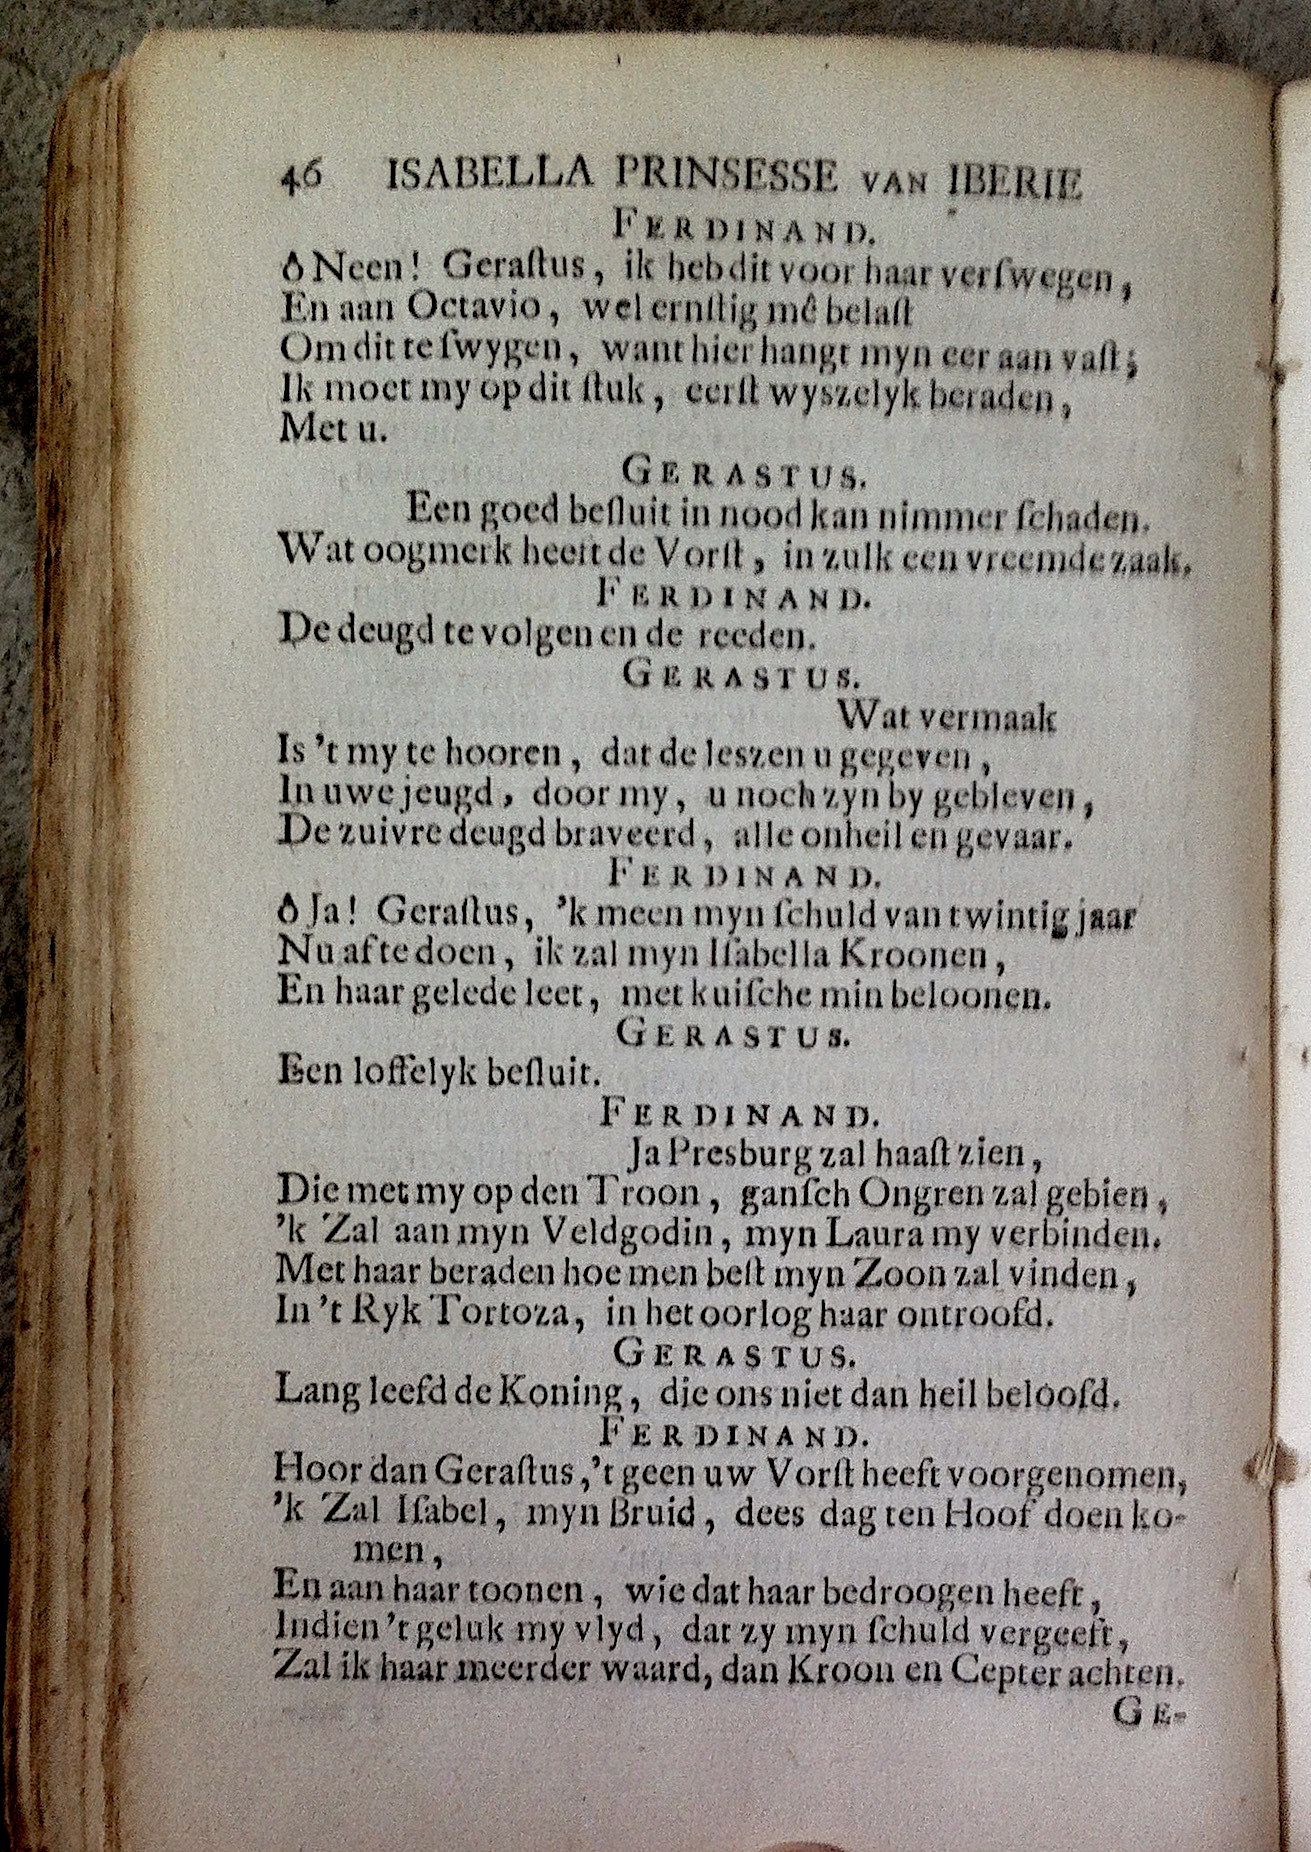 46 ISABELLA PRINSESSE VAN IBERIE
FERDINAND.
ô Neen! Geraſtus, ik heb dit voor haar verſwegen,
En aan Octavio, wel ernſtig mê belaſt
Om dit te ſwygen, want hier hangt myn eer aan vaſt;
Ik moet my op dit ſtuk, eerſt wyszelyk beraden,
Met u.
GERASTUS.
Een goed beſluit in nood kan nimmer ſchaden.
Wat oogmerk heeft de Vorſt, in zulk een vreemde zaak.
FERDINAND.
De deugd te volgen en de reeden.
GERASTUS.
Wat vermaak
Is 't my te hooren, dat de leszen u gegeven,
In uwe jeugd, door my, u noch zyn by gebleven,
De zuivre deugd braveerd, alle onheil en gevaar.
FERDINAND.
ô Ja! Geraſtus, 'k meen myn ſchuld van twintig jaar
Nu af te doen, ik zal myn Iſabella Kroonen,
En haar gelede leet, met kuiſche min beloonen.
GERASTUS.
Een loffelyk beſluit.
FERDINAND.
Ja Presburg zal haaſt zien,
Die met my op den Troon, ganſch Ongren zal gebien,
'k Zal aan myn Veldgodin, myn Laura my verbinden.
Met haar beraden hoe men beſt myn Zoon zal vinden,
In 't Ryk Tortoza, in het oorlog haar ontroofd.
GERASTUS.
Lang leefd de Koning, die ons niet dan heil beloofd.
FERDINAND.
Hoor dan Geraſtus, 't geen uw Vorſt heeft voorgenomen,
'k Zal Iſabel, myn Bruid, dees dag ten Hoof doen ko-
men,
En aan haar toonen, wie dat haar bedroogen heeft,
Indien 't geluk my vlyd, dat zy myn ſchuld vergeeft,
Zal ik haar meerder waard, dan Kroon en Cepter achten.
GE-